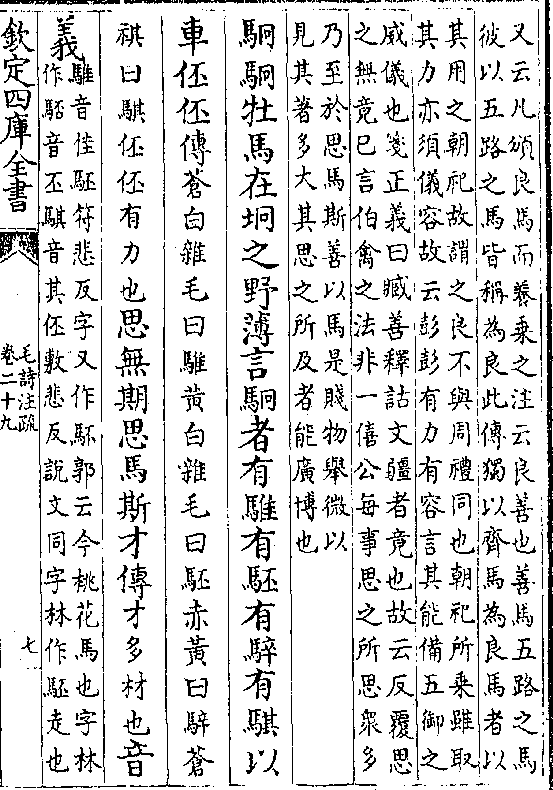 又云凡頒良馬而養乗之注云良善也善馬五路之馬
彼以五路之馬皆稱為良此傳獨以齊馬為良馬者以
其用之朝祀故謂之良不與周禮同也朝祀所乗雖取
其力亦須儀容故云彭彭有力有容言其能備五御之
威儀也箋正義曰臧善釋詁文疆者竟也故云反覆思
之無竟已言伯禽之法非一僖公每事思之所思衆多
乃至於思馬斯善以馬是賤物舉微以
見其著多大其思之所及者能廣博也
駉駉牡馬在坰之野薄言駉者有騅有駓有騂有騏以
車伾伾傳蒼白雜毛曰騅黃白雜毛曰駓赤黃曰騂蒼
祺曰騏伾伾有力也思無期思馬斯才傳才多材也音
義
騅音隹駓符悲反字又作䮆郭云今桃花馬也字林
作駓音丕騏音其伾敷悲反說文同字林作駓走也
欽定四庫全書
毛詩注疏
卷二十九
七